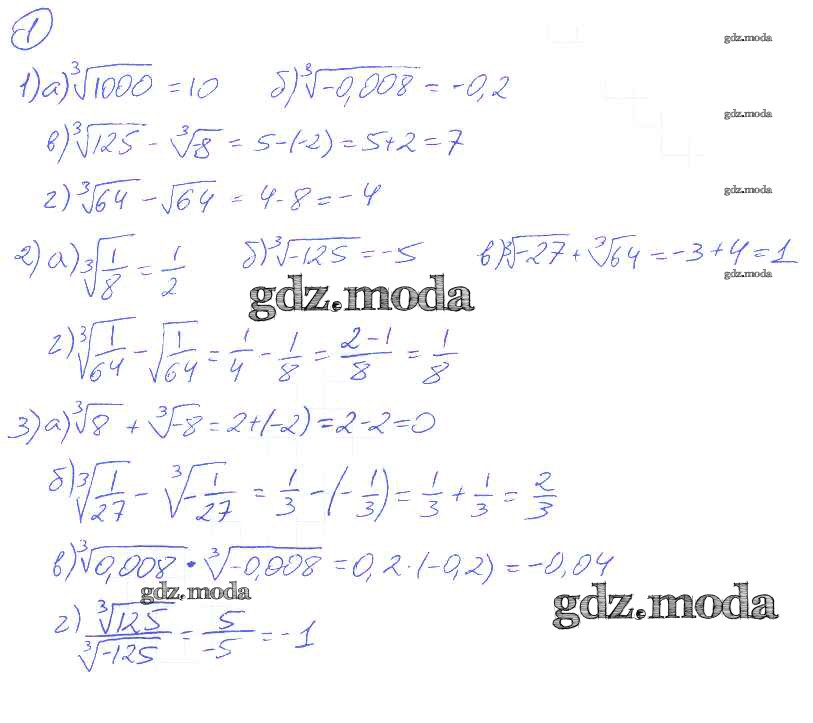 1
gdz.moda
1) а) ∛1000 = 10 б) ∛-0,008 = -0,2
gdz.moda
в) ∛125 - ∛-8 = 5-(-2) = 5+2 = 7
г) ∛64 - √64 = 4-8 = -4
gdz.moda
2) а) ∛(1/8) = 1/2 б) ∛-125 = -5 в) ∛-27 + ∛64 = -3+4 = 1
gdz.moda
gdz.moda
г) ∛(1/64) - √(1/64) = 1/4 - 1/8 = (2-1)/8 = 1/8
3) а) ∛8 + ∛-8 = 2+(-2) = 2-2 = 0
б) ∛(1/27) - ∛(-1/27) = 1/3 - (-1/3) = 1/3 + 1/3 = 2/3
в) ∛0,008 · ∛-0,008 = 0,2·(-0,2) = -0,04
gdz.moda
gdz.moda
г) ∛125/∛-125 = 5/-5 = -1